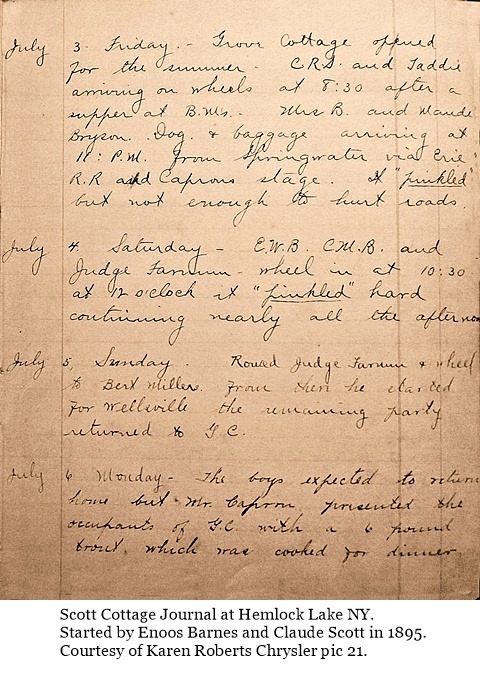 July 3. Friday. - Grove Cottage opened
for the summer - C.R.S. and Taddie
arriving on wheels at 8:30 after a
supper at B.M's. - Mrs B. and Maude
Bryson. Dog. & baggage arriving at
11: P.M. from Springwater via Erie
R.R and Caprons stage. It "pinkled"
but not enough to hurt roads.
July 4. Saturday - E.W.B. C.M.B. and
Judge Farnum - wheel in at 10:30
at 12 o'clock it "pinkled" hard
continuing nearly all the afternoon
July 5. Sunday. Rowed Judge Farnum & wheel
to Bert Millers. From then he started
for Wellsville the remaining party
returned to G.C.
July 6 Monday - The boys expected to return
home but Mr. Capron, presented the
occupants of G.C. with a 6 pound
trout, which was cooked for dinner
Scott Cottage Journal at Hemlock Lake NY.
Started by Enoos Barnes and Claude Scott in 1895.
Courtesy of Karen Roberts Chrysler pic 21.